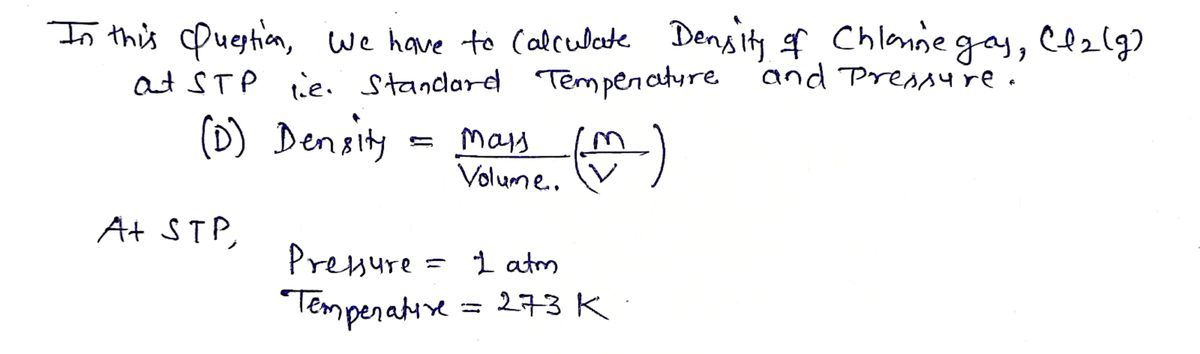 In this Question, We have to Calculate Density of Chlorine gas, Cl2(g)
at STP i.e. Standard Temperature and Pressure.
(D) Density = Mass/Volume. (m/V)
At STP,
Pressure = 1 atm
Temperature = 273 K